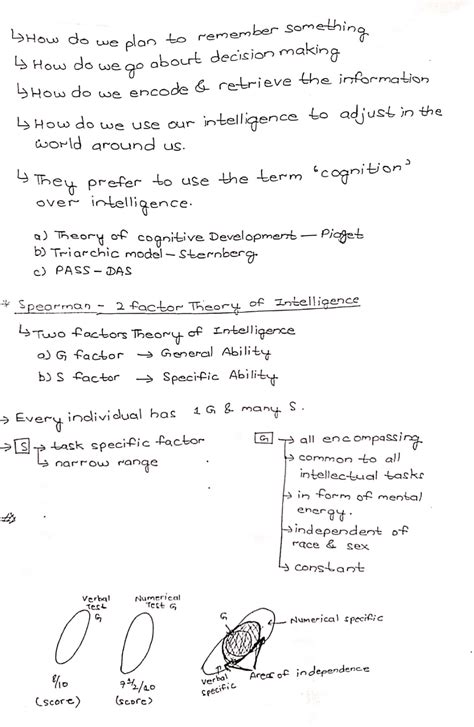 ↳How do we plan to remember something
↳ How do we go about decision making
↳How do we encode & retrieve the information
↳How do we use our intelligence to adjust in the
world around us.
↳ They prefer to use the term 'cognition'
over intelligence.
a) Theory of cognitive Development — Piaget
b) Triarchic model – Sternberg.
c) PASS – DAS
* Spearman – 2 factor Theory of Intelligence
↳Two factors Theory of Intelligence
a) G factor → General Ability
b) S factor → Specific Ability
→ Every individual has 1 G & many S.
→ S → task specific factor
↳ narrow range
G → all encompassing
→ common to all
intellectual tasks
→ in form of mental
energy.
→independent of
race & sex
↳ constant
Verbal
Test
G
8/10
(score)
Numerical
Test G
(score)
G
Numerical specific
Verbal
specific
Areas of independence